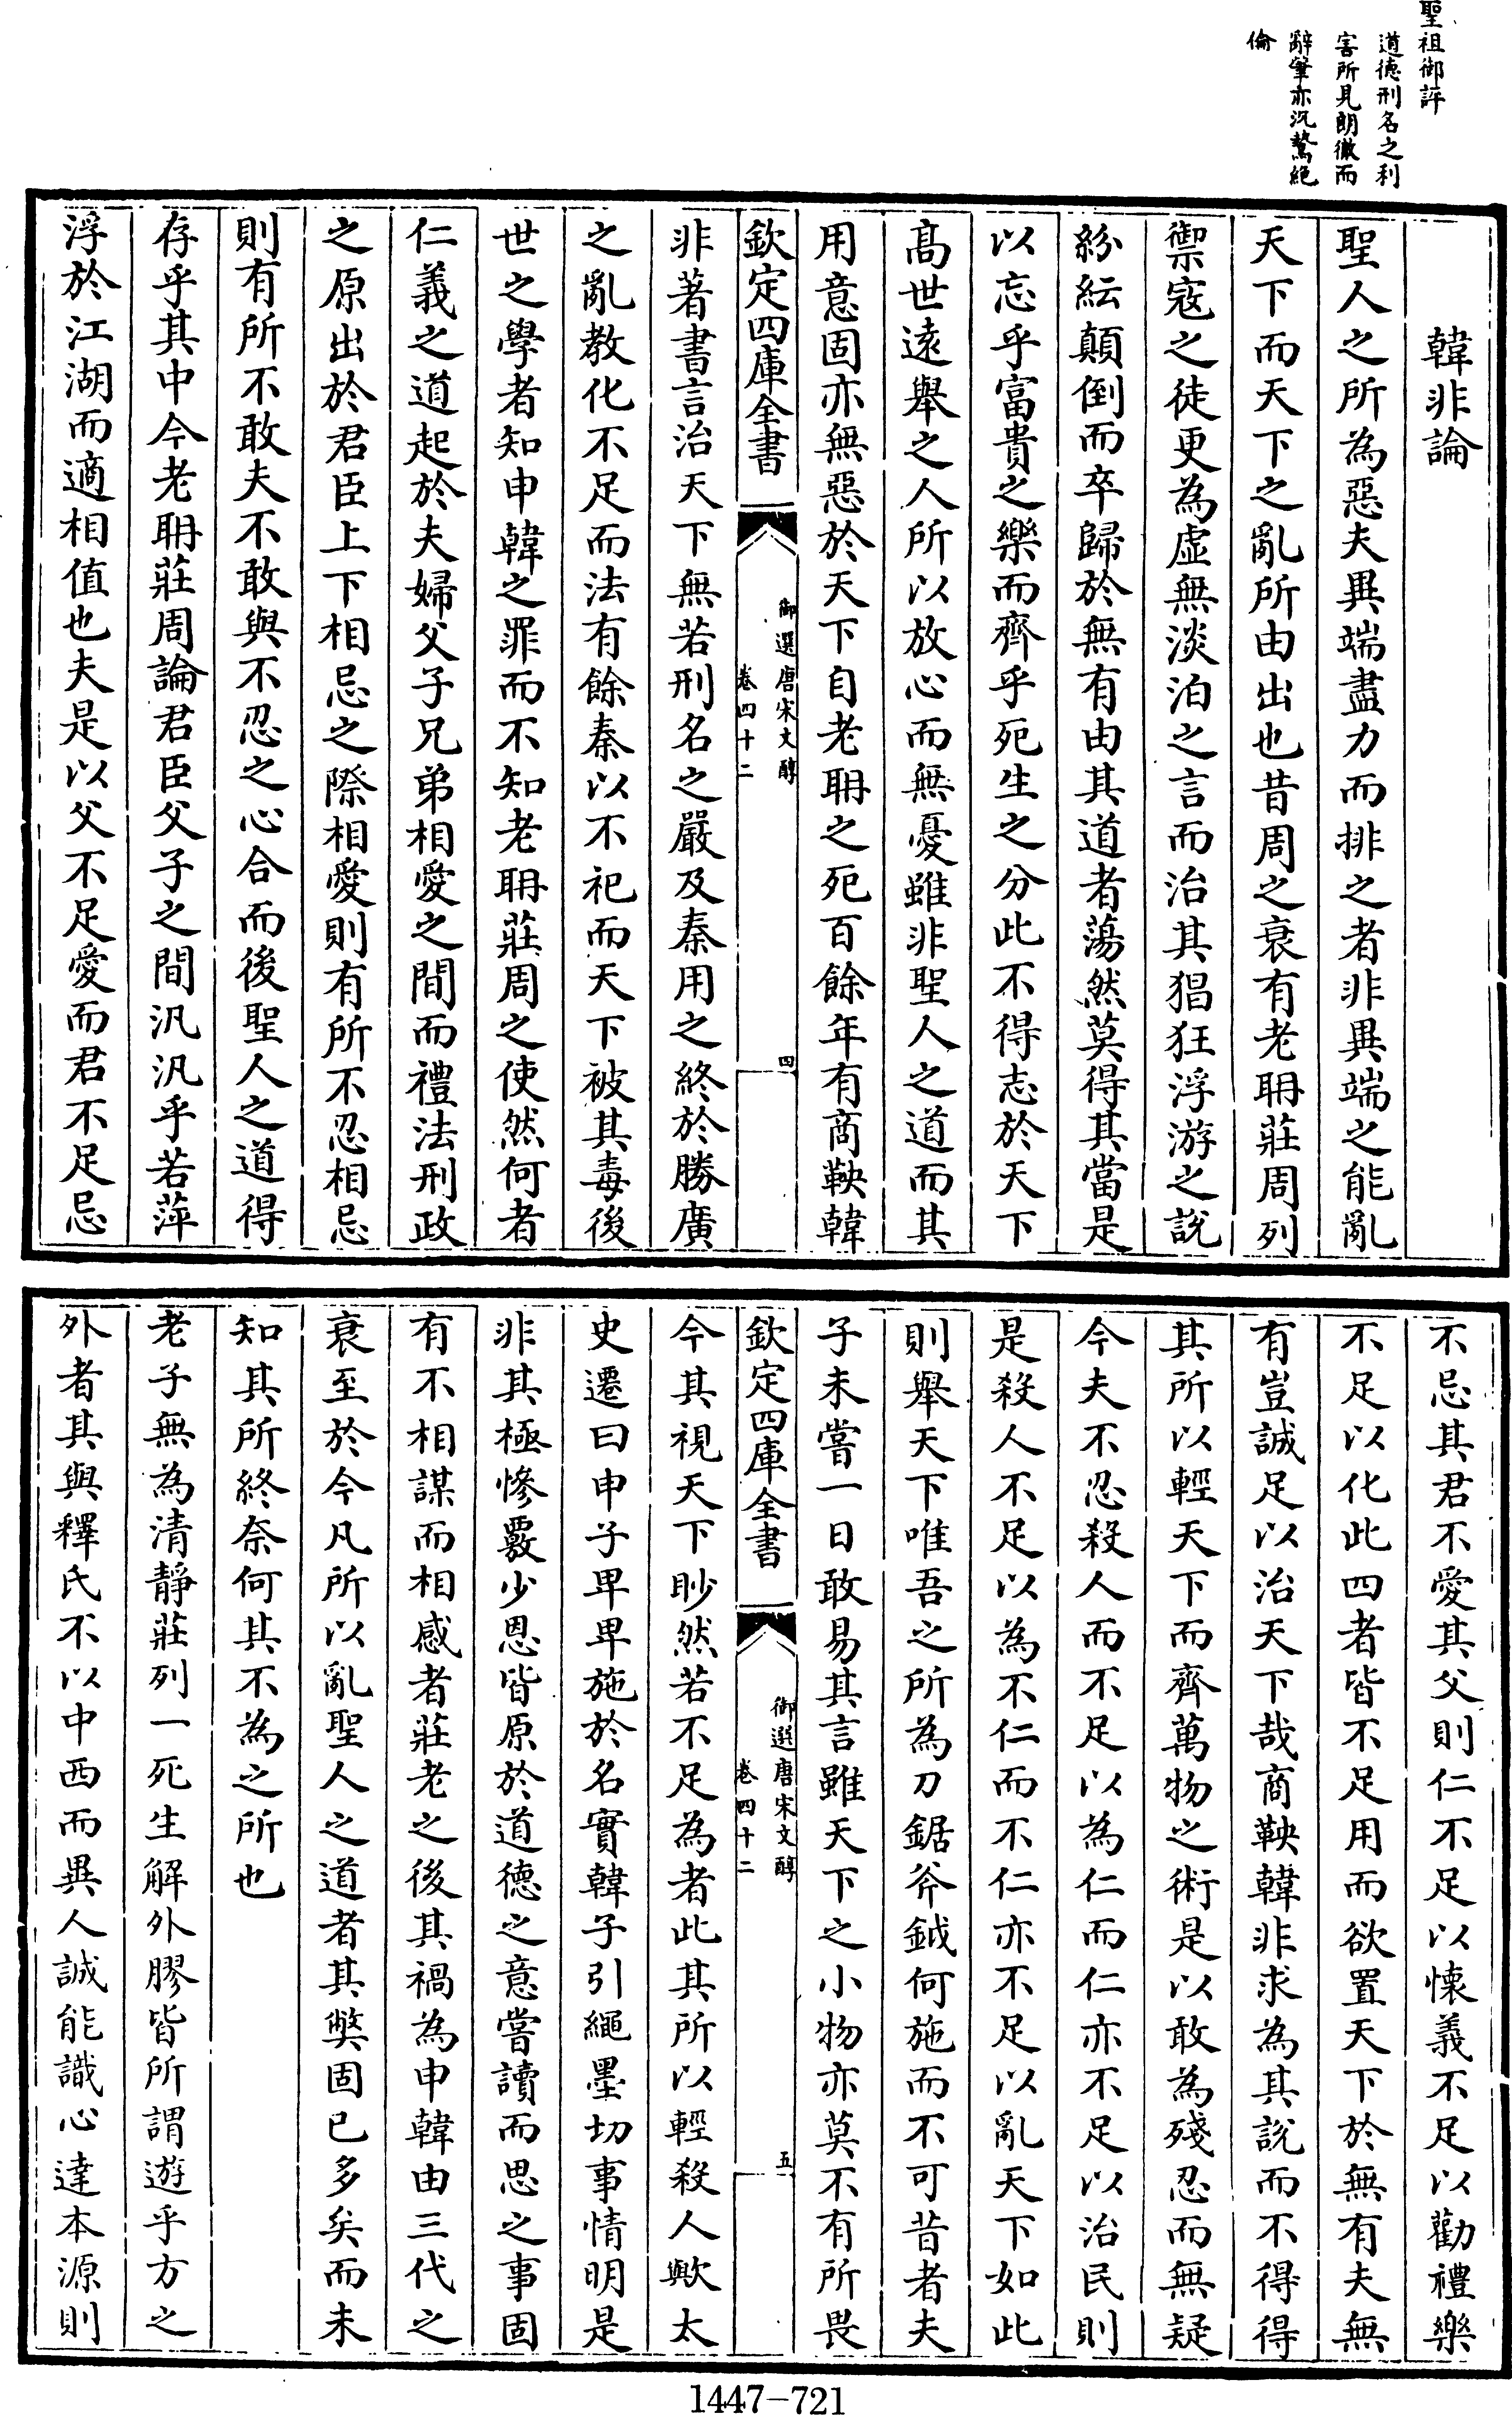 聖祖御評
道德刑名之利
害所見朗徹而
辭筆亦沉鷙絕
倫
韓非論
聖人之所為惡夫異端盡力而排之者非異端之能亂
天下而天下之亂所由出也昔周之衰有老聃莊周列
禦寇之徒更為虛無淡泊之言而治其猖狂浮游之說
紛紜顛倒而卒歸於無有由其道者蕩然莫得其當是
以忘乎富貴之樂而齊乎死生之分此不得志於天下
高世遠舉之人所以放心而無憂雖非聖人之道而其
用意固亦無惡於天下自老聃之死百餘年有商鞅韓
欽定四庫全書
御選唐宋文醇
卷四十二
四
非著書言治天下無若刑名之嚴及秦用之終於勝廣
之亂教化不足而法有餘秦以不祀而天下被其毒後
世之學者知申韓之罪而不知老聃莊周之使然何者
仁義之道起於夫婦父子兄弟相愛之間而禮法刑政
之原出於君臣上下相忌之際相愛則有所不忍相忌
則有所不敢夫不敢與不忍之心合而後聖人之道得
存乎其中今老聃莊周論君臣父子之間汎汎乎若萍
浮於江湖而適相值也夫是以父不足愛而君不足忌
不忌其君不愛其父則仁不足以懷義不足以勸禮樂
不足以化此四者皆不足用而欲置天下於無有夫無
有豈誠足以治天下哉商鞅韓非求為其說而不得得
其所以輕天下而齊萬物之術是以敢為殘忍而無疑
今夫不忍殺人而不足以為仁而仁亦不足以治民則
是殺人不足以為不仁而不仁亦不足以亂天下如此
則舉天下唯吾之所為刀鋸斧鉞何施而不可昔者夫
子未嘗一日敢易其言雖天下之小物亦莫不有所畏
欽定四庫全書
御選唐宋文醇
卷四十二
五
今其視天下眇然若不足為者此其所以輕殺人歟太
史遷曰申子卑卑施於名實韓子引繩墨切事情明是
非其極慘覈少恩皆原於道德之意嘗讀而思之事固
有不相謀而相感者莊老之後其禍為申韓由三代之
衰至於今凡所以亂聖人之道者其弊固已多矣而未
知其所終奈何其不為之所也
老子無為清靜莊列一死生解外膠皆所謂遊乎方之
外者其與釋氏不以中西而異人誠能識心達本源則
1447-721